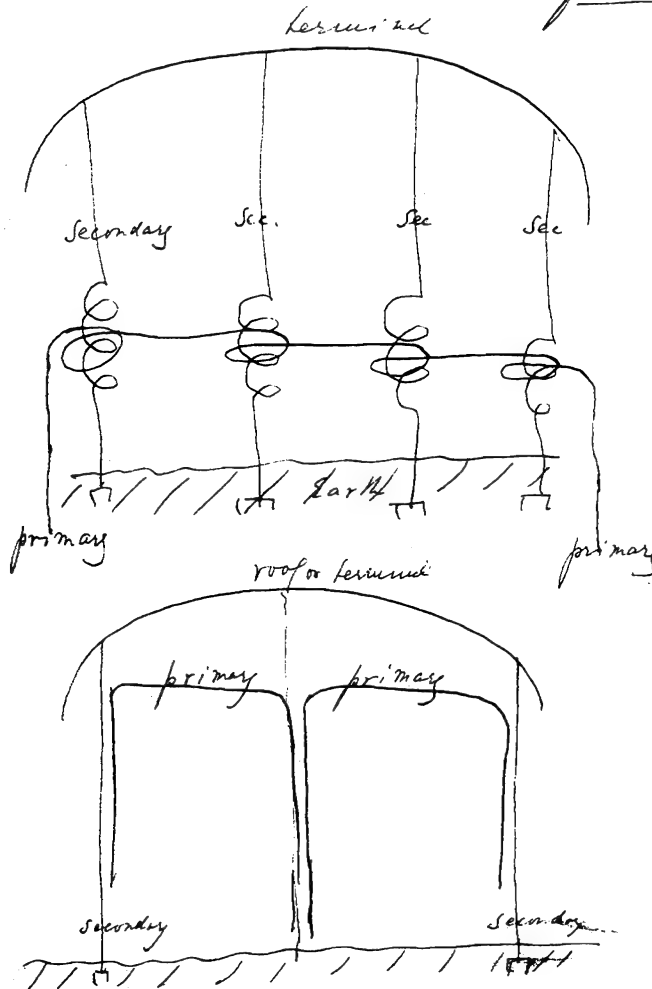 terminal
Secondary Sec. Sec Sec
Earth
primary primary
roof or terminal
primary primary
secondary secondary